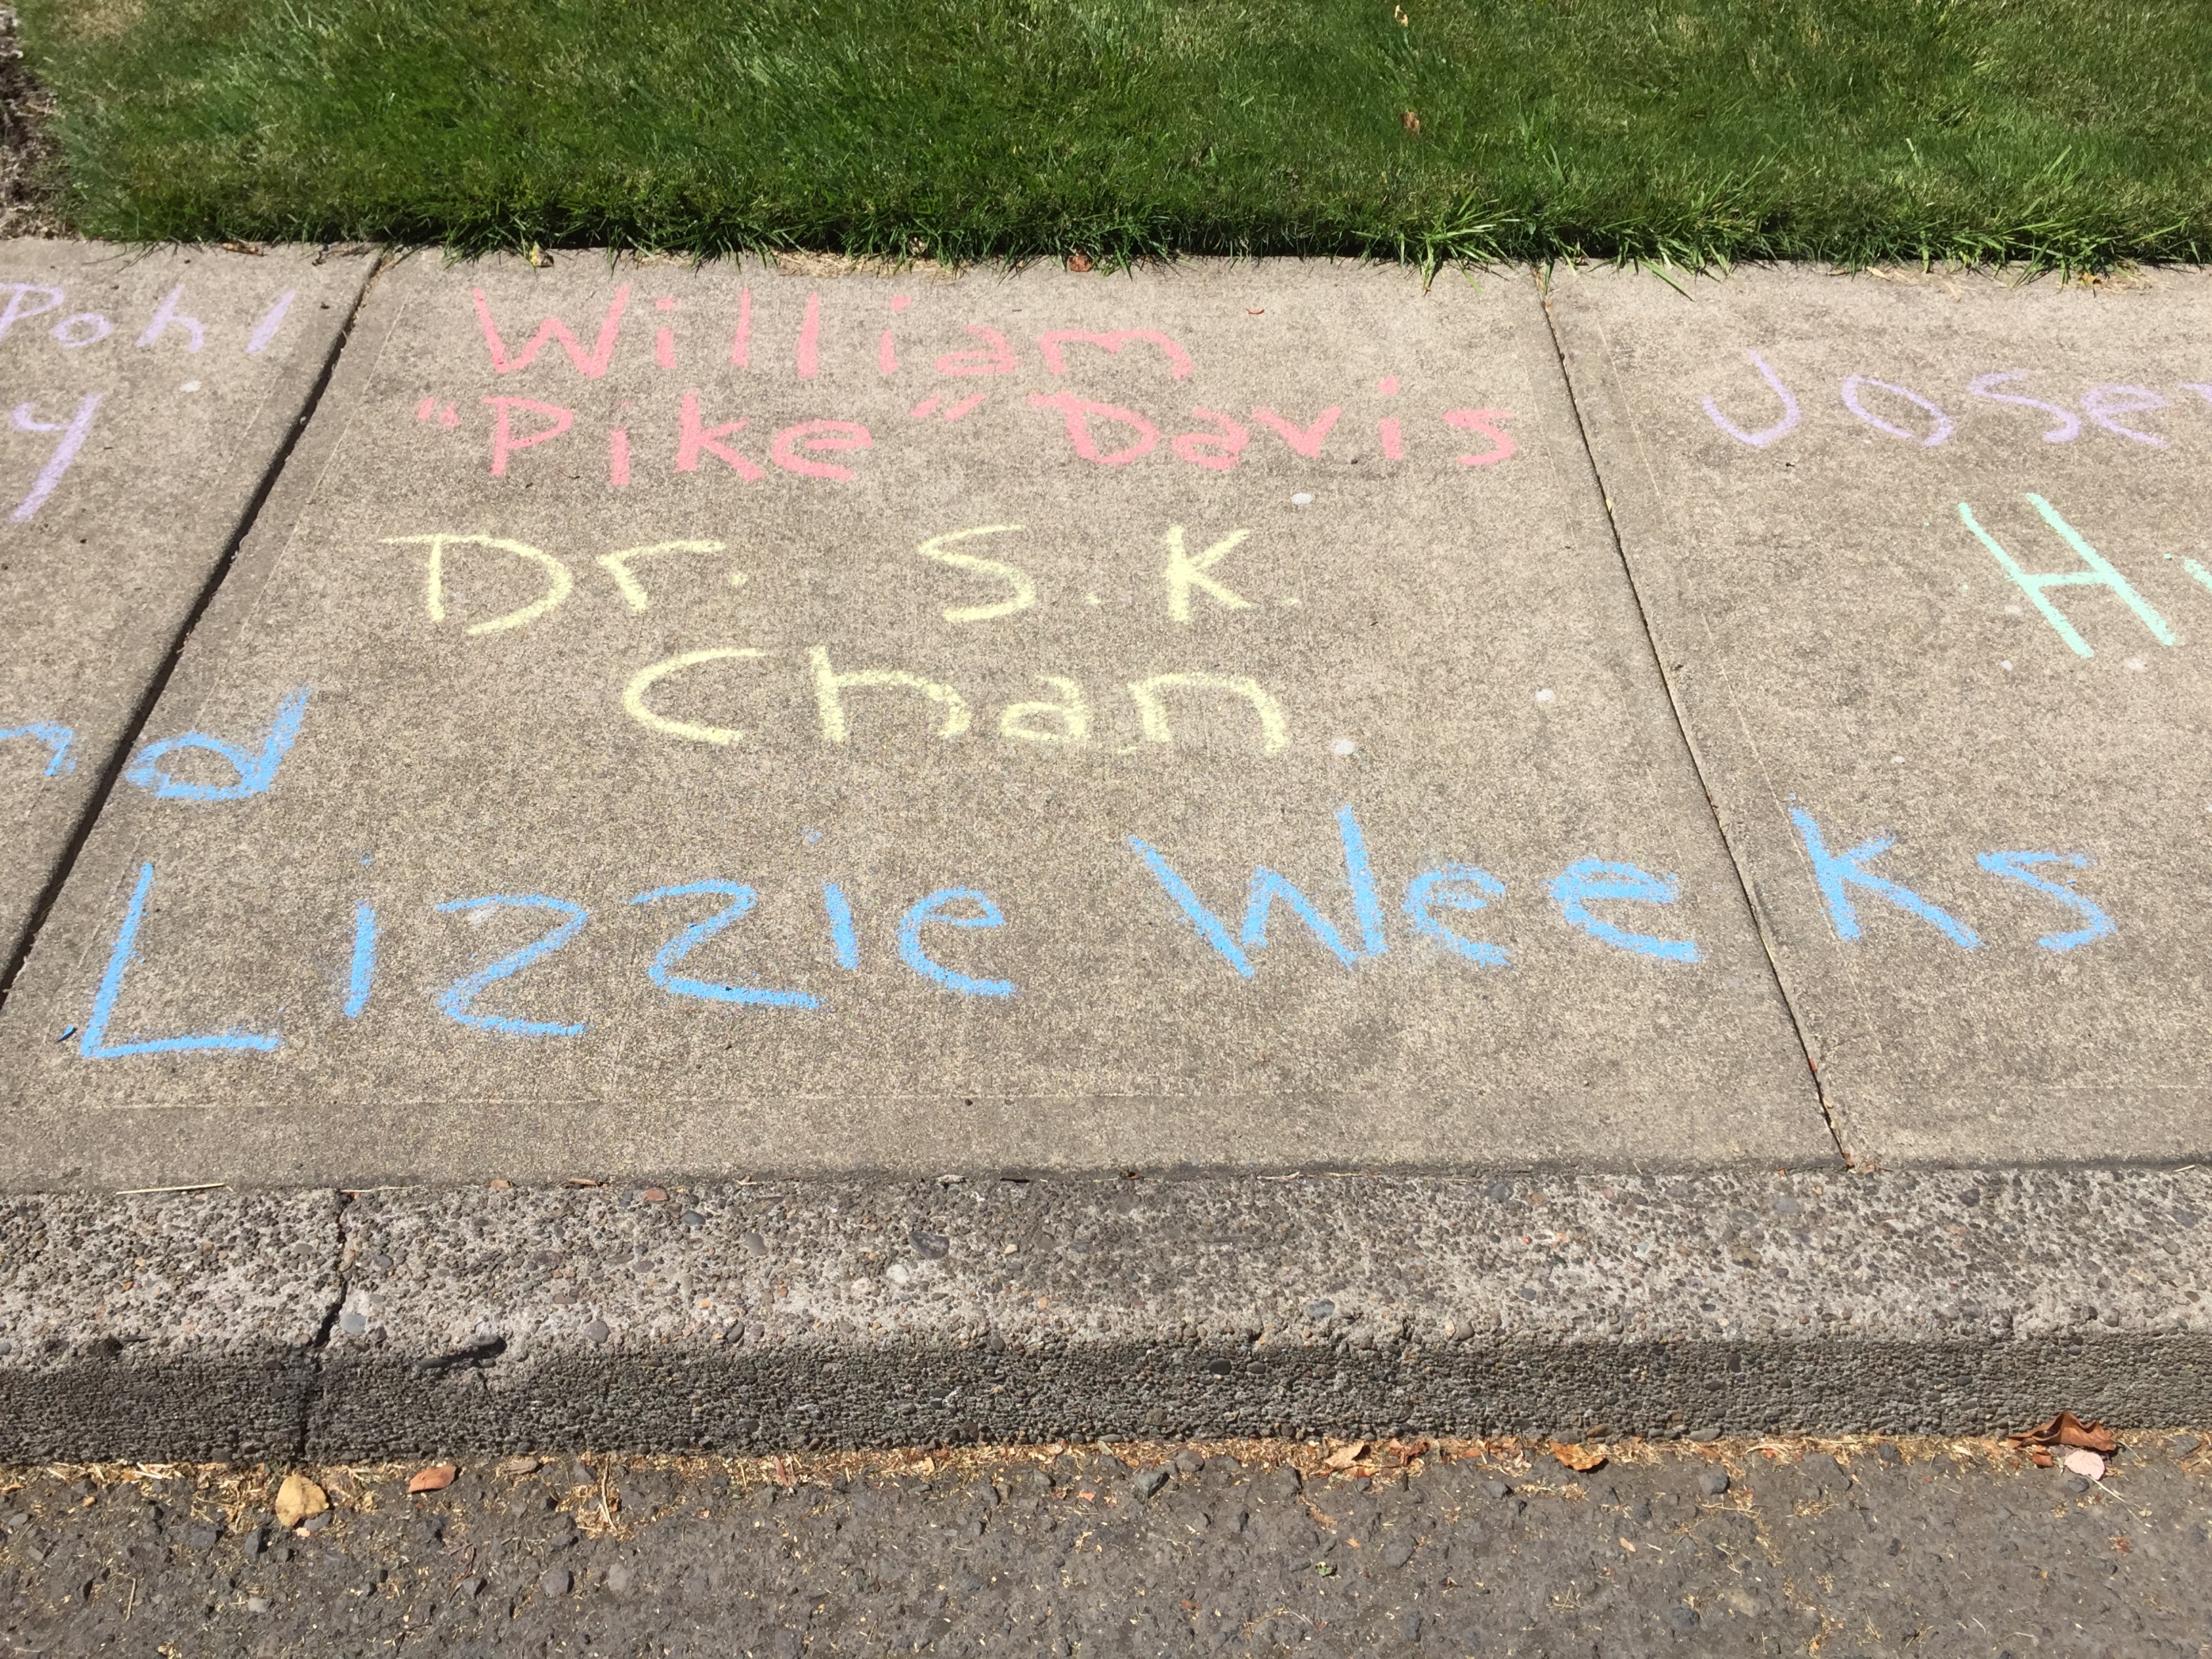 Pohl
William
"Pike" Davis
Dr. S.K.
Chan
Lizzie Weeks